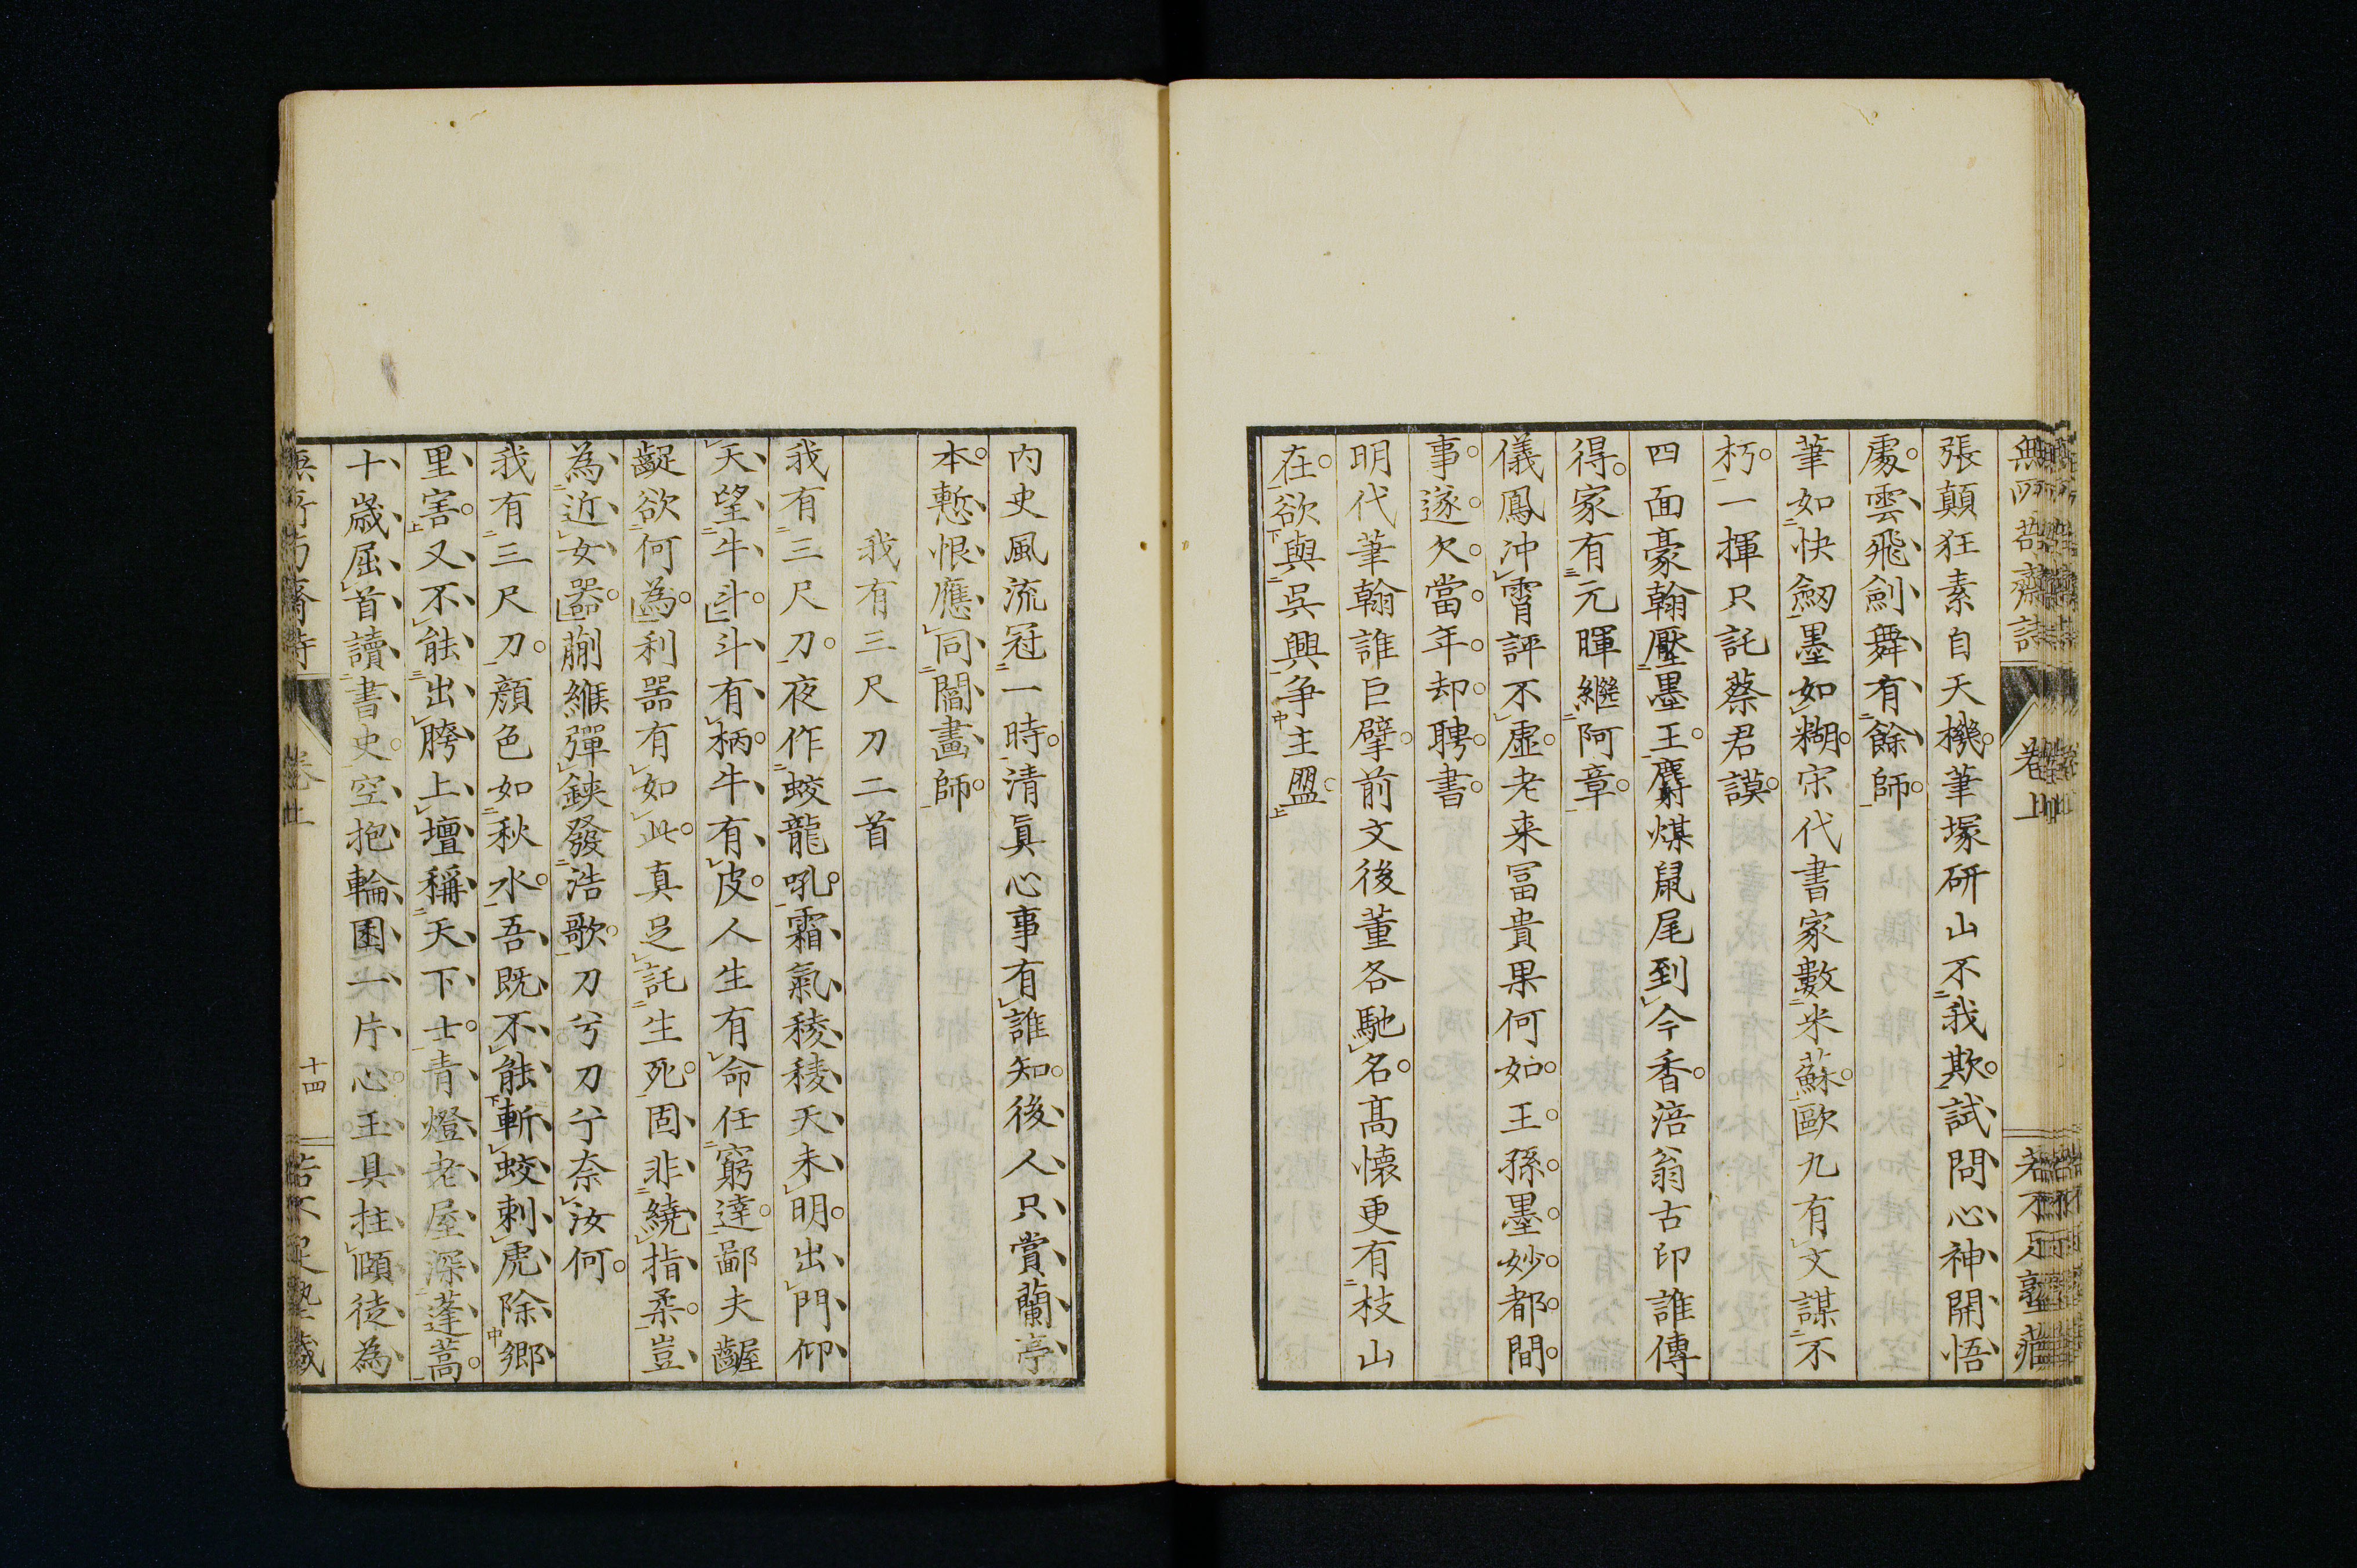 張顛狂素自天機筆塚研山不我欺試問心神開悟
處雲飛劍舞有餘師
筆如快劒墨如糊宋代書家數米蘇歐九有文謀不
朽一揮只託蔡君謨
四面豪翰壓墨王麝煤鼠尾到今香涪翁古印誰傳
得家有元暉繼阿章
儀鳳冲霄評不虛老来冨貴果何如王孫墨妙都閒
事遂欠當年却聘書
明代筆翰誰巨擘前文後董各馳名髙懷更有枝山
在欲與吳興争主盟
內史風流冠一時清眞心事有誰知後人只賞蘭亭
本慙恨應同閻畵師
我有三尺刀二首
我有三尺刀夜作蛟龍吼霜氣稜稜天未明出門仰
天望牛斗斗有柄牛有皮人生有命任窮達鄙夫齷
齪欲何為利噐有如此真足託生死固非繞指柔豈
為近女器蒯緱彈鋏發浩歌刀兮刀兮奈汝何
我有三尺刀顔色如秋水吾既不能斬蛟刺虎除鄉
里害又不能出胯上壇稱天下士青燈老屋深蓬蒿
十歳屈首讀書史空抱輪囷一片心玉具拄頤徒為
卷上
十四